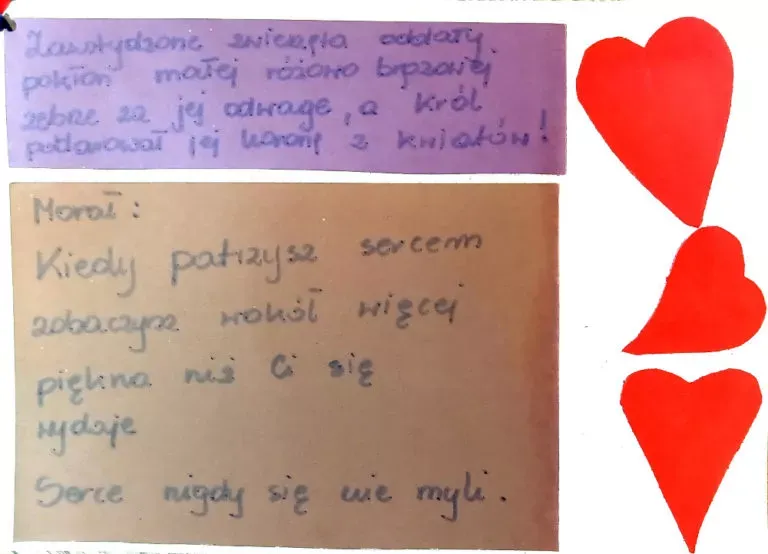 Zawstydzone zwierzęta oddały
pokłon małej różowo brązowej
zebrze za jej odwagę, a Król
podarował jej koronę z kwiatów!
Morał:
Kiedy patrzysz sercem
zobaczysz wokół więcej
piękna niż Ci się
wydaje
Serce nigdy się nie myli.